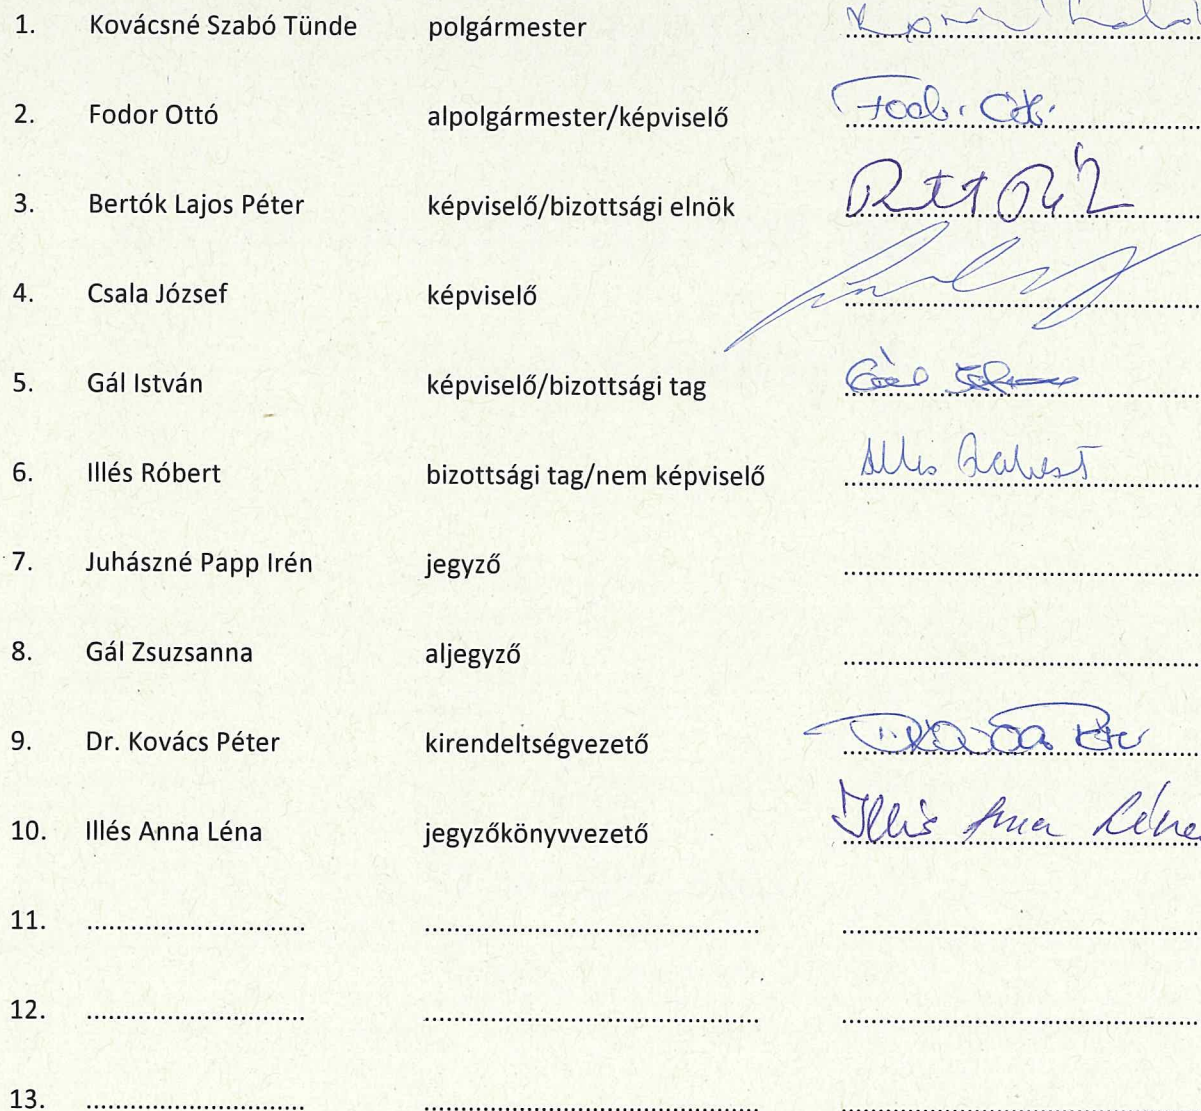 1. Kovácsné Szabó Tünde polgármester
2. Fodor Ottó alpolgármester/képviselő
3. Bertók Lajos Péter képviselő/bizottsági elnök
4. Csala József képviselő
5. Gál István képviselő/bizottsági tag
6. Illés Róbert bizottsági tag/nem képviselő
7. Juhászné Papp Irén jegyző ........................................
8. Gál Zsuzsanna aljegyző ........................................
9. Dr. Kovács Péter kirendeltségvezető
10. Illés Anna Léna jegyzőkönyvvezető Illés Anna Léna
11. ............................ ........................................... ........................................
12. ............................ ........................................... ........................................
13. ............................ ........................................... ........................................